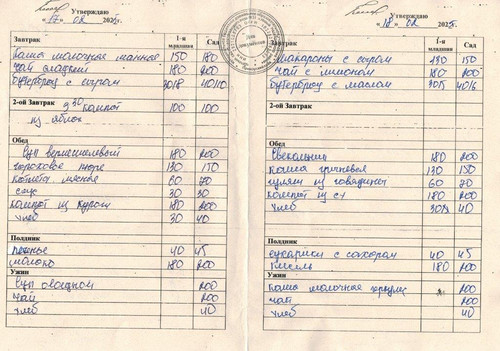 Утверждаю
« 17 » 02 2025г
Завтрак 1-я младшая Сад
каша молочная манная 150 180
чай сладкий 180 200
бутерброд с сыром 30/8 40/10
2-ой Завтрак 9 30 компот 100 100
из яблок
Обед
Суп вермешелевый 180 200
гороховое пюре 130 150
котлета мясная 60 70
соус 30 30
компот из кураги 180 200
хлеб 30 40
Полдник
печенье 40 45
молоко 180 200
Ужин
Суп овощной 200
чай 200
хлеб 40
Для документов
Утверждаю
« 18 » 02 2025г.
Завтрак 1-я младшая Сад
макароны с сыром 130 150
чай с лимоном 180 200
бутерброд с маслом 30/5 40/6
2-ой Завтрак
Обед
Свекольник 180 200
каша гречневая 130 150
гуляш из говядины 60 70
компот из с/ф 180 200
хлеб 30 40
Полдник
сухарики с сахаром 40 45
кисель 180 200
Ужин
каша молочная 200
чай 200
хлеб 40